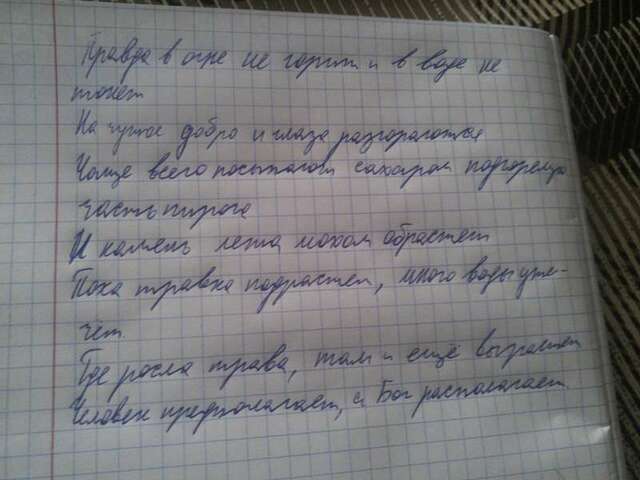 Правда в огне не горит и в воде не
тонет
На чужое добро и глаза разгораются
Чаще всего посыпают сахаром подгорелую
часть пирога
И камень лежа мохом обрастет
Пока травка подрастет, много воды уте-
чёт
Где росла трава, там и ещё вырастет
Человек предполагает, а Бог располагает